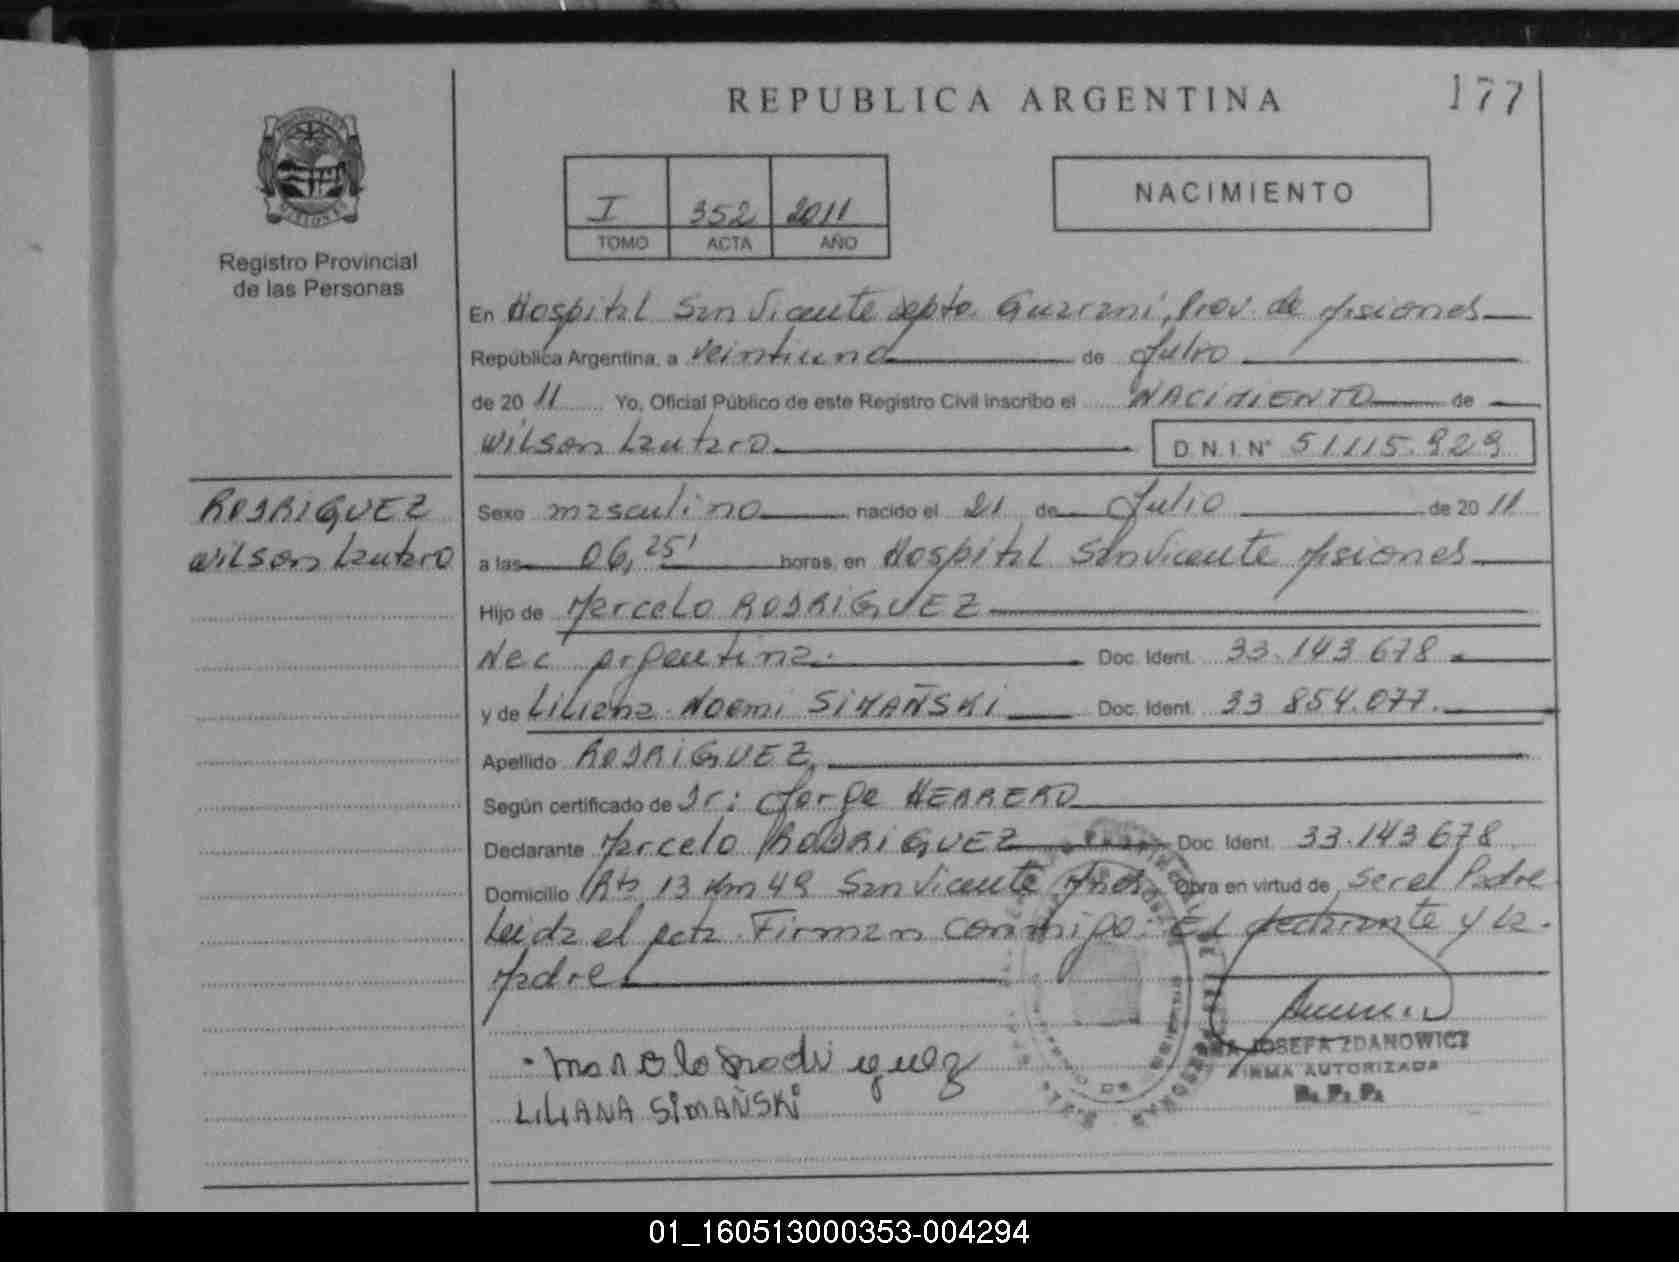 REPUBLICA ARGENTINA
177
I 352 2011
TOMO ACTA AÑO
NACIMIENTO
Registro Provincial
de las Personas
En Hospital San Vicente depto. Guarani, Prov. de Misiones
República Argentina, a veintiuno de Julio
de 20 11 Yo, Oficial Público de este Registro Civil inscribo el NACIMIENTO de
Wilson Lautaro D.N.I. N° 51.115.929
RODRIGUEZ
Wilson Lautaro
Sexo masculino nacido el 21 de Julio de 20 11
a las 06,25' horas, en Hospital San Vicente Misiones
Hijo de Marcelo RODRIGUEZ
Nac Argentina. Doc. Ident. 33.143.678
y de Liliana Noemi SIMAÑSKI Doc. Ident. 33 854.077.
Apellido RODRIGUEZ
Según certificado de Dr: Jorge HERRERO
Declarante Marcelo RODRIGUEZ Doc. Ident. 33.143.678
Domicilio Rta 13 Km 49 San Vicente Obra en virtud de ser el Padre
Leida el acta. Firman conmigo: El declarante y la
Madre
LILIANA SIMAÑSKI
JOSEFA ZDANOWICZ
FIRMA AUTORIZADA
R. P. P.
01_160513000353-004294